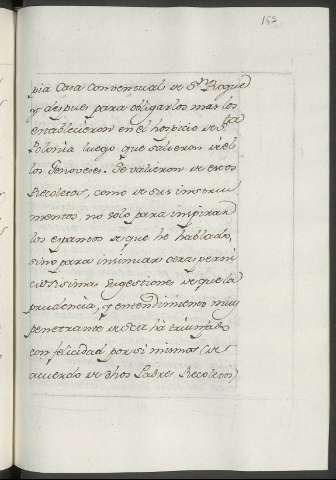 pia Casa Conventual de Sn. Roque
y despues para obligarlos mas los
establecieron en el hospicio de Sta.
Polonia luego que salieron de el
los Genoveses. Se valieron de estos
Recoletos, como de sus instru
mentos, no solo para inspirar
los espantos de que he hablado,
sino para insinuar otras perni
ciosissimas sugestiones de que la
prudencia, y entendimiento muy
penetrante de ha triunfado
con felicidad por si mismo (de
acuerdo de dhos Padres Recoletos)